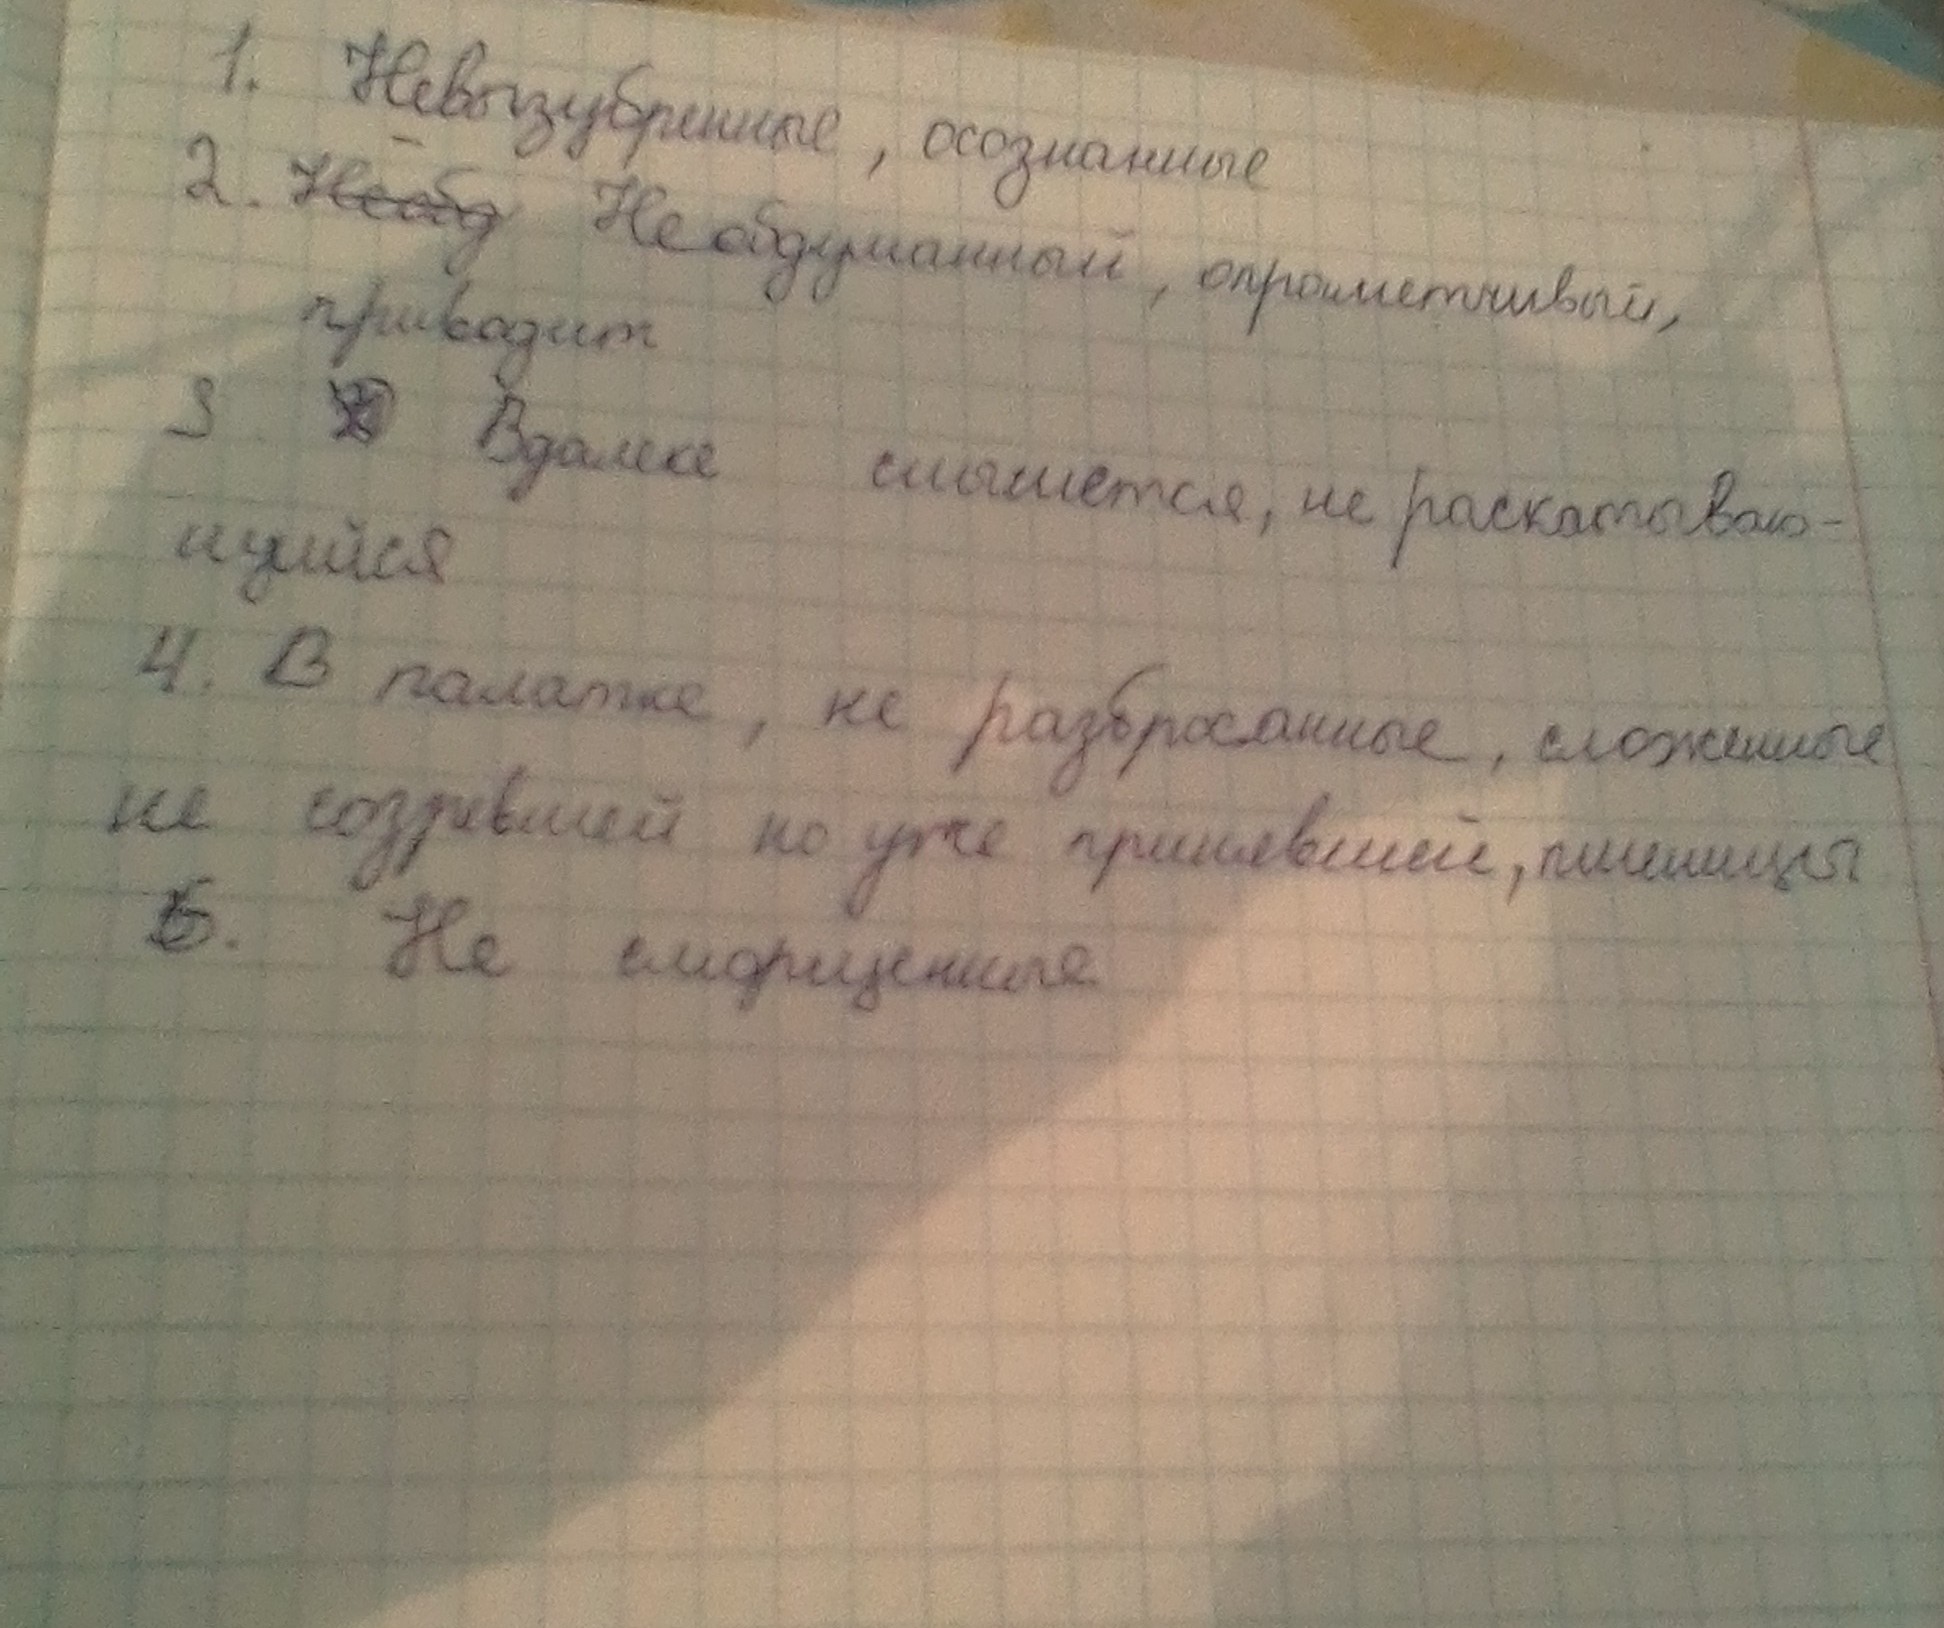 1. Невызубренные, осознанные
2. Необд Необдуманный, опрометчивый,
приводит
3 Вдалеке слышется, не раскатываю-
щийся
4. В палатке, не разбросанные, сложенные
не созревшей но уже принявшей, пшеницы
5. Не сморщенные